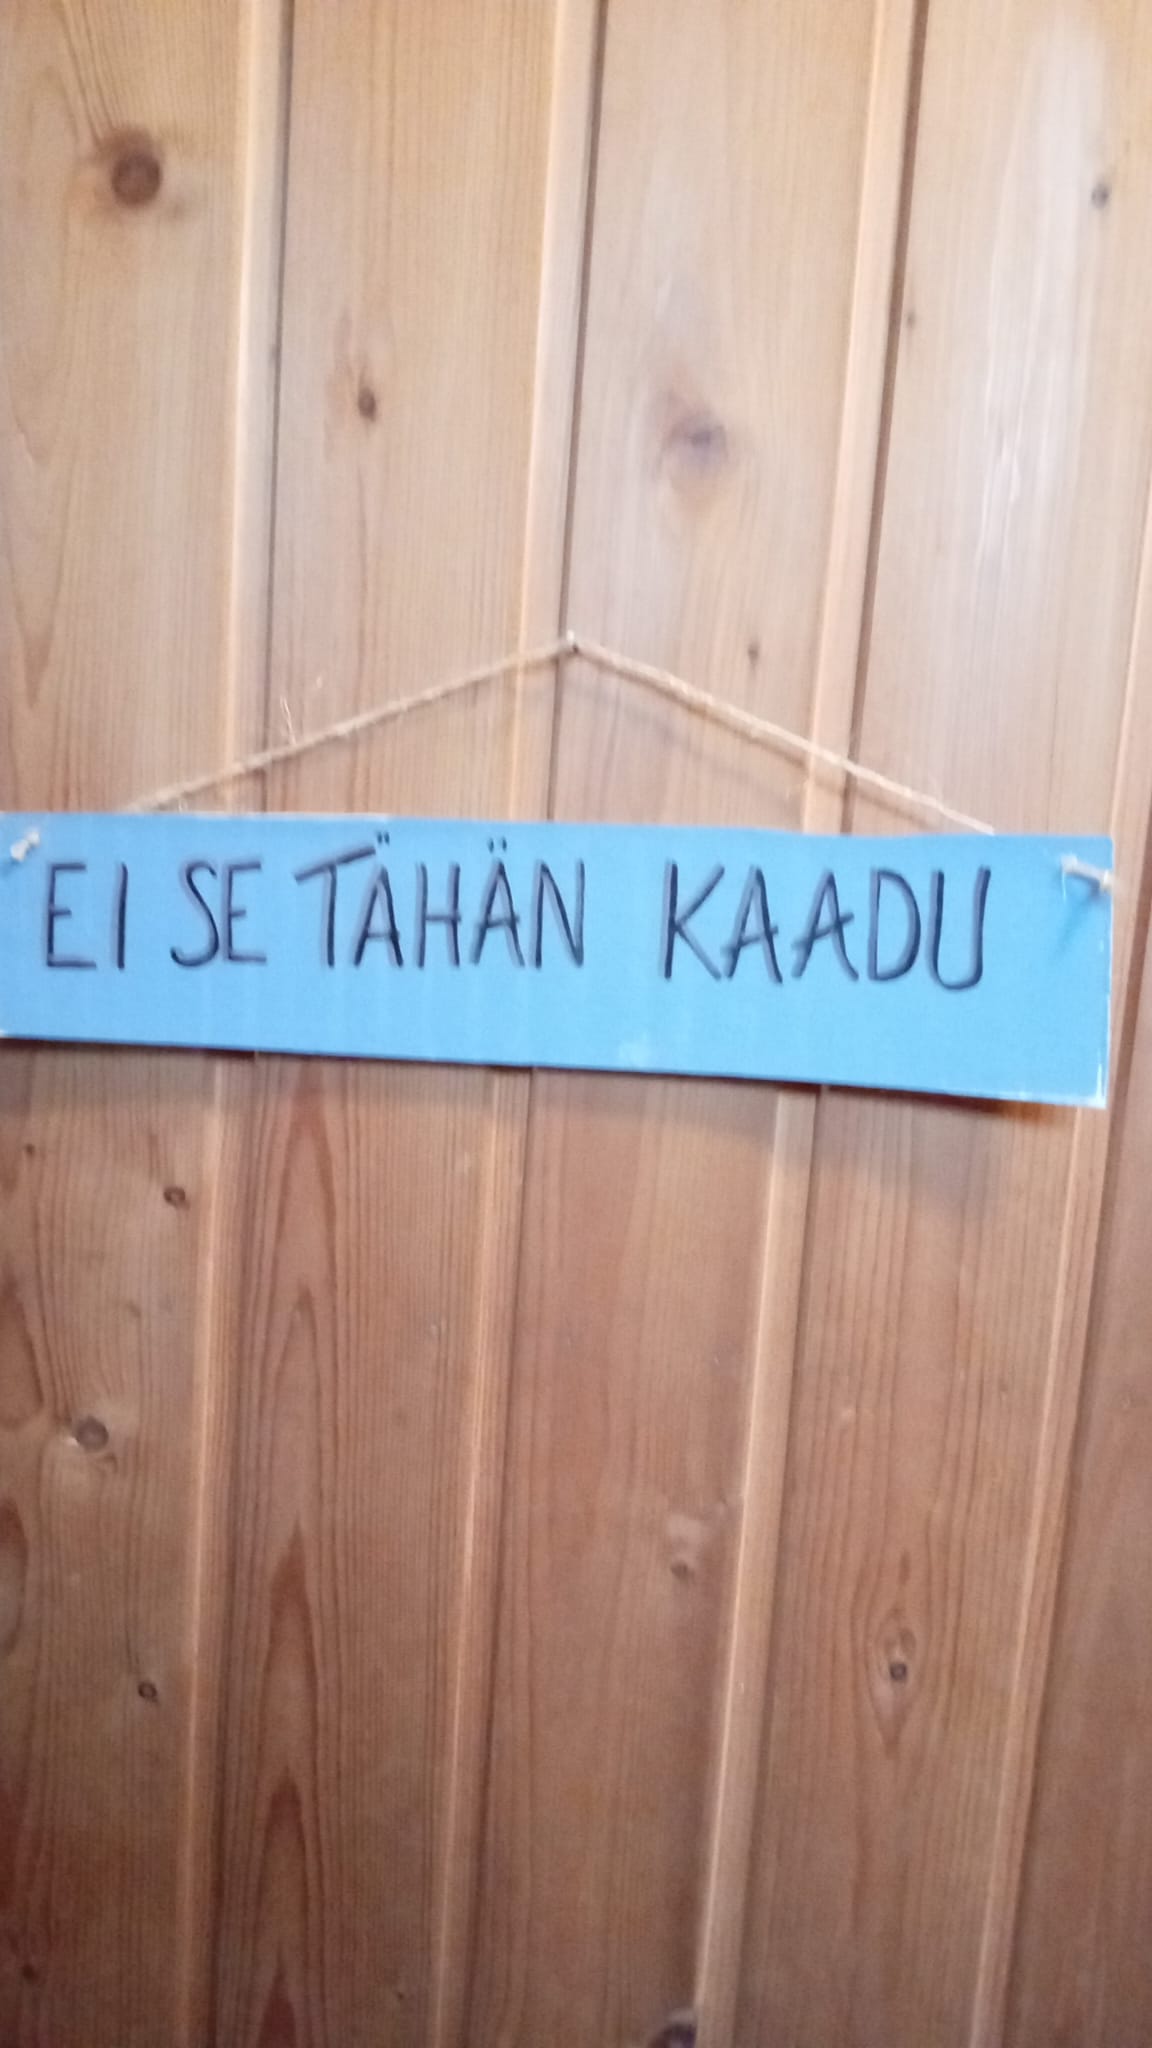 EI SE TÄHÄN KAADU